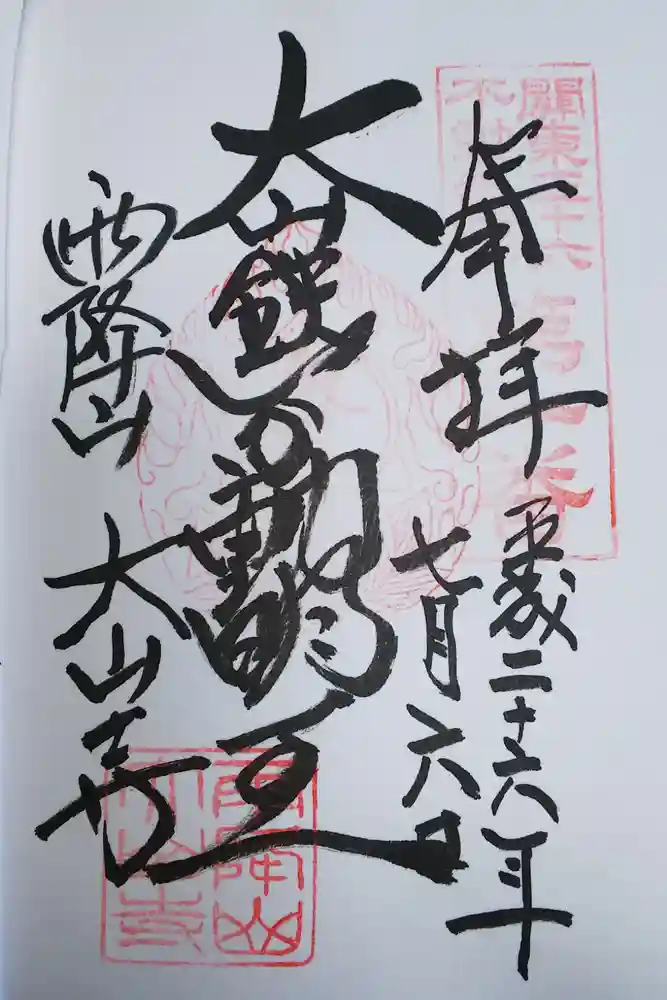 關東三十六
奉拝
平成二十六年
七月六日
大山鐵不動明王
雨降山 大山寺
雨降山
大山寺